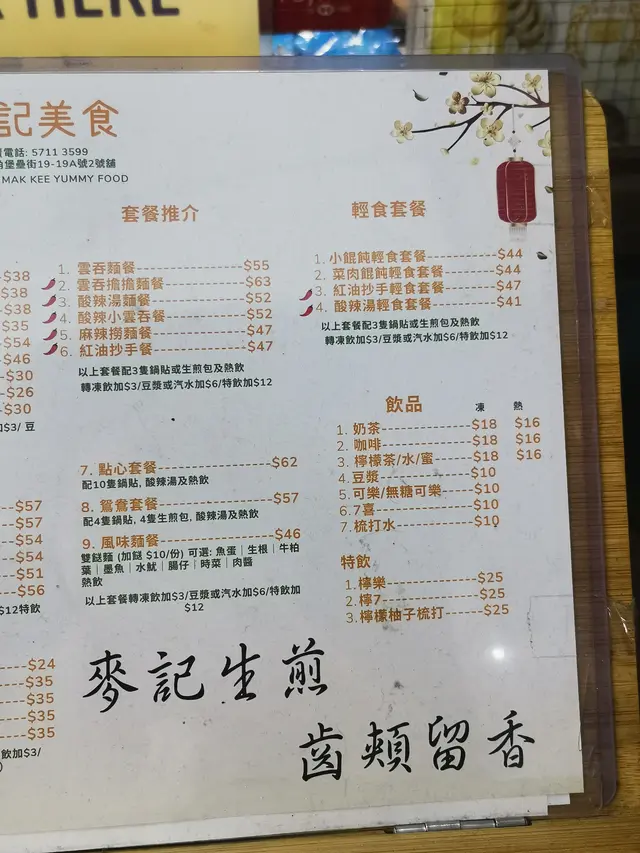 HERE
記美食
電話: 5711 3599
堡壘街19-19A號2號舖
MAK KEE YUMMY FOOD
--$38
$38
-$38
$35
-$54
-$46
-$30
-$26
-$30
$3/ 豆
--$57
--$57
--$54
--$54
--$51
--$56
$12特飲
----$24
----$35
----$35
----$35
----$35
飲加$3/
套餐推介
1. 雲吞麵餐----------------$55
2. 雲吞擔擔麵餐----------$63
3. 酸辣湯麵餐-------------$52
4. 酸辣小雲吞餐----------$52
5. 麻辣撈麵餐-------------$47
6. 紅油抄手餐-------------$47
以上套餐配3隻鍋貼或生煎包及熱飲
轉凍飲加$3/豆漿或汽水加$6/特飲加$12
7. 點心套餐----------------$62
配10隻鍋貼, 酸辣湯及熱飲
8. 鴛鴦套餐----------------$57
配4隻鍋貼, 4隻生煎包, 酸辣湯及熱飲
9. 風味麵餐----------------$46
雙餸麵 (加餸 $10/份) 可選: 魚蛋｜生根｜牛柏
葉｜墨魚｜水魷｜腸仔｜時菜｜肉醬
熱飲
以上套餐轉凍飲加$3/豆漿或汽水加$6/特飲加
$12
輕食套餐
1. 小餛飩輕食套餐----------$44
2. 菜肉餛飩輕食套餐-------$44
3. 紅油抄手輕食套餐-------$47
4. 酸辣湯輕食套餐----------$41
以上套餐配3隻鍋貼或生煎包及熱飲
轉凍飲加$3/豆漿或汽水加$6/特飲加$12
飲品 凍 熱
1. 奶茶---------------$18 $16
2. 咖啡---------------$18 $16
3. 檸檬茶/水/蜜------$18 $16
4.豆漿---------------$10
5. 可樂/無糖可樂-----$10
6.7喜----------------$10
7. 梳打水-------------$10
特飲
1.檸樂---------------$25
2.檸7----------------$25
3.檸檬柚子梳打------$25
麥記生煎
齒頰留香